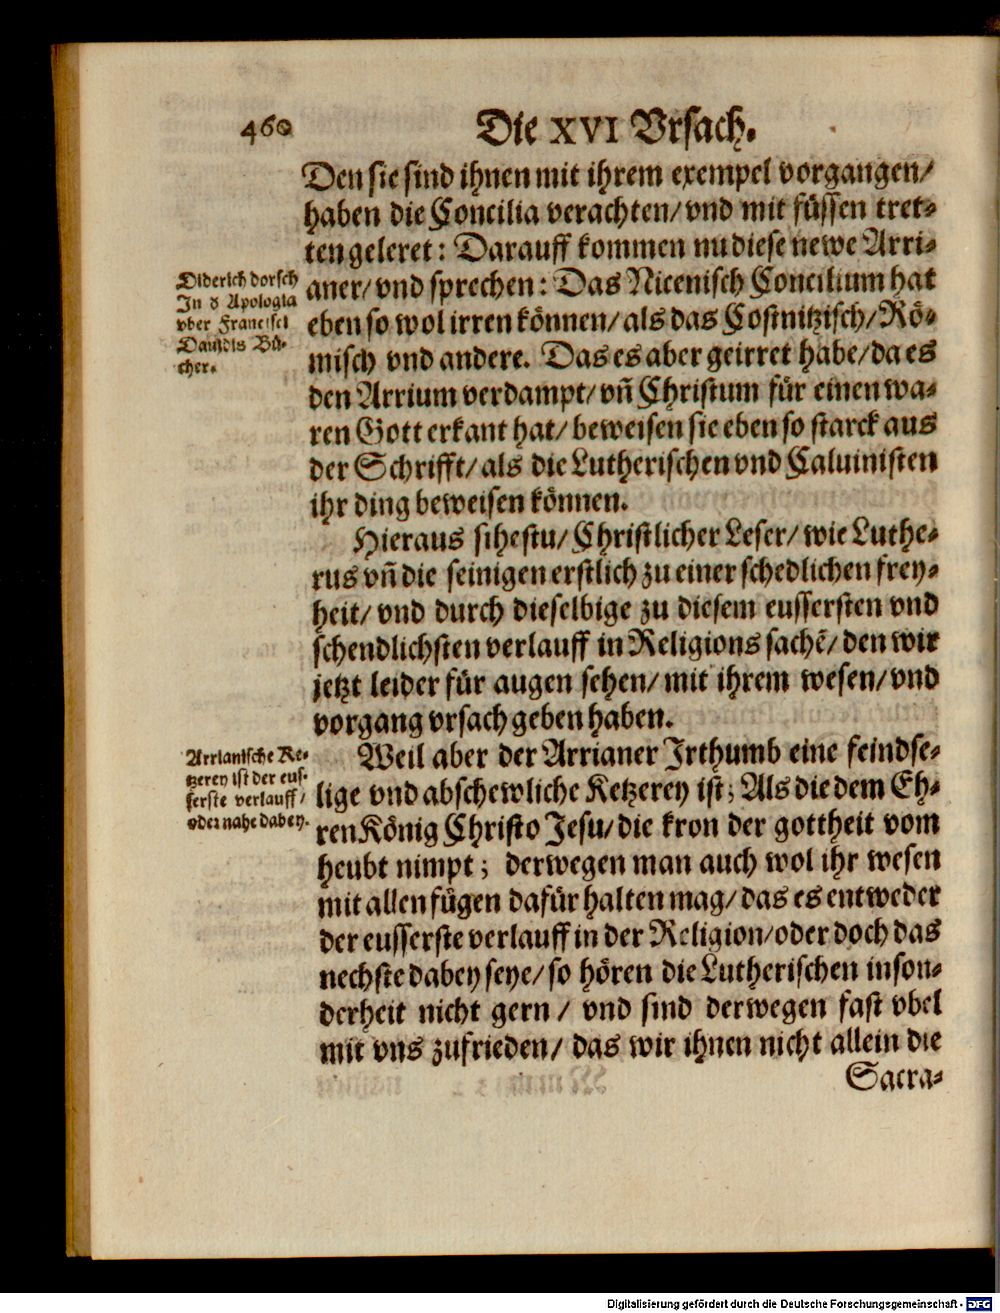 460
Die XVI Vrsach.
Den sie sind ihnen mit ihrem exempel vorgangen/
haben die Concilia verachten/ vnd mit füssen tret⸗
ten geleret: Darauff kommen nu diese newe Arri⸗
aner/ vnd sprechen: Das Nicenisch Concilium hat
eben so wol irren können/ als das Costnitzisch/ Rö⸗
misch vnd andere. Das es aber geirret habe/ da es
den Arrium verdampt/ vñ Christum für einen wa⸗
ren Gott erkant hat/ beweisen sie eben so starck aus
der Schrifft/ als die Lutherischen vnd Caluinisten
ihr ding beweisen können.
Diderich dorsch
In d Apologia
vber Francisci
Dauidis Bü⸗
cher.
Hieraus sihestu/ Christlicher Leser/ wie Luthe⸗
rus vñ die seinigen erstlich zu einer schedlichen frey⸗
heit/ vnd durch dieselbige zu diesem eussersten vnd
schendlichsten verlauff in Religions sachẽ/ den wir
jetzt leider für augen sehen/ mit ihrem wesen/ vnd
vorgang vrsach geben haben.
Weil aber der Arrianer Irthumb eine feindse⸗
lige vnd abschewliche Ketzerey ist; Als die dem Eh⸗
ren König Christo Jesu/ die kron der gottheit vom
heubt nimpt; derwegen man auch wol ihr wesen
mit allen fügen dafür halten mag/ das es entweder
der eusserste verlauff in der Religion/ oder doch das
nechste dabey seye/ so hören die Lutherischen inson⸗
derheit nicht gern/ vnd sind derwegen fast vbel
mit vns zufrieden/ das wir ihnen nicht allein die
Sacra⸗
Arrianische Ke⸗
tzerey ist der eus⸗
serste verlauff/
oder nahe dabey.
Digitalisierung gefördert durch die Deutsche Forschungsgemeinschaft - DFG